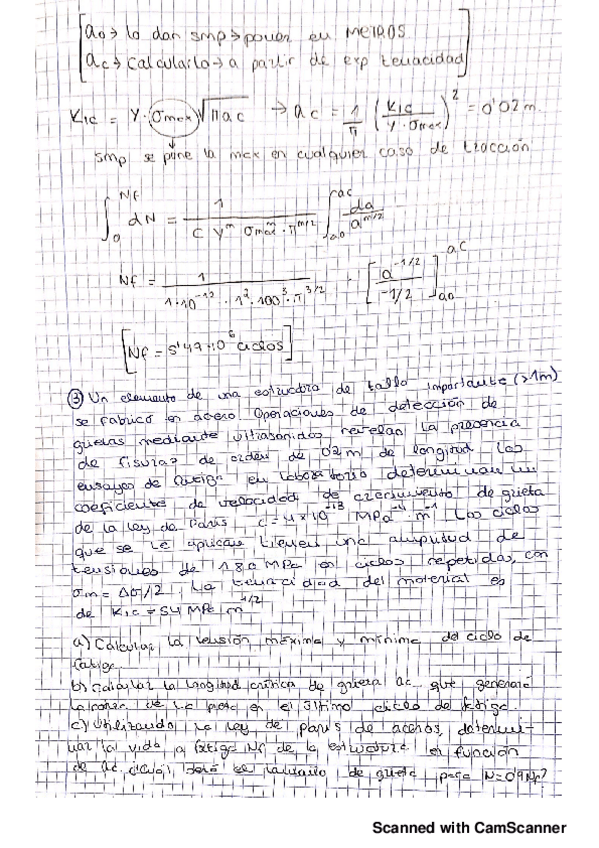 a0 → lo dan smp → poner en METROS
ac → calcularlo → a partir de exp tenacidad
K1c = Y · σmax √πac → ac = 1/π (K1c / Y · σmax)² = 0'02 m
smp se pone la max en cualquier caso de tracción
∫₀^Nf dN = 1 / (C Y^m σmax^m · π^(m/2)) ∫a0^ac da / a^(m/2)
Nf = · [a^(-1/2) / (-1/2)] a0 ac
[Nf = 5'47·10⁶ ciclos]
③ Un elemento de una estructura de talla importante (>1m)
se fabricó en acero. Operaciones de detección de
grietas mediante ultrasonidos revelan la presencia
de fisuras de orden de de longitud. Los
ensayos de fatiga en laboratorio determinan un
coeficiente de velocidad de crecimiento de grieta
de la ley de Paris, MPa⁻⁴ m⁻¹. Los ciclos
que se le aplican tienen una amplitud de
tensiones de 180 MPa en ciclos repetidos, con
σm = Δσ/2. La tenacidad del material es
de K1c = 54 MPa m^1/2
a) Calcular la tensión máxima y mínima del ciclo de
fatiga
b) Calcular la longitud crítica de grieta ac que generará
la rotura de la pieza en el último ciclo de fatiga.
c) Utilizando la ley de Paris de aceros, determi-
nar la vida a fatiga Nf de la estructura en función
de ac. ¿Cuál será el tamaño de grieta para N=0'9Nf?
Scanned with CamScanner